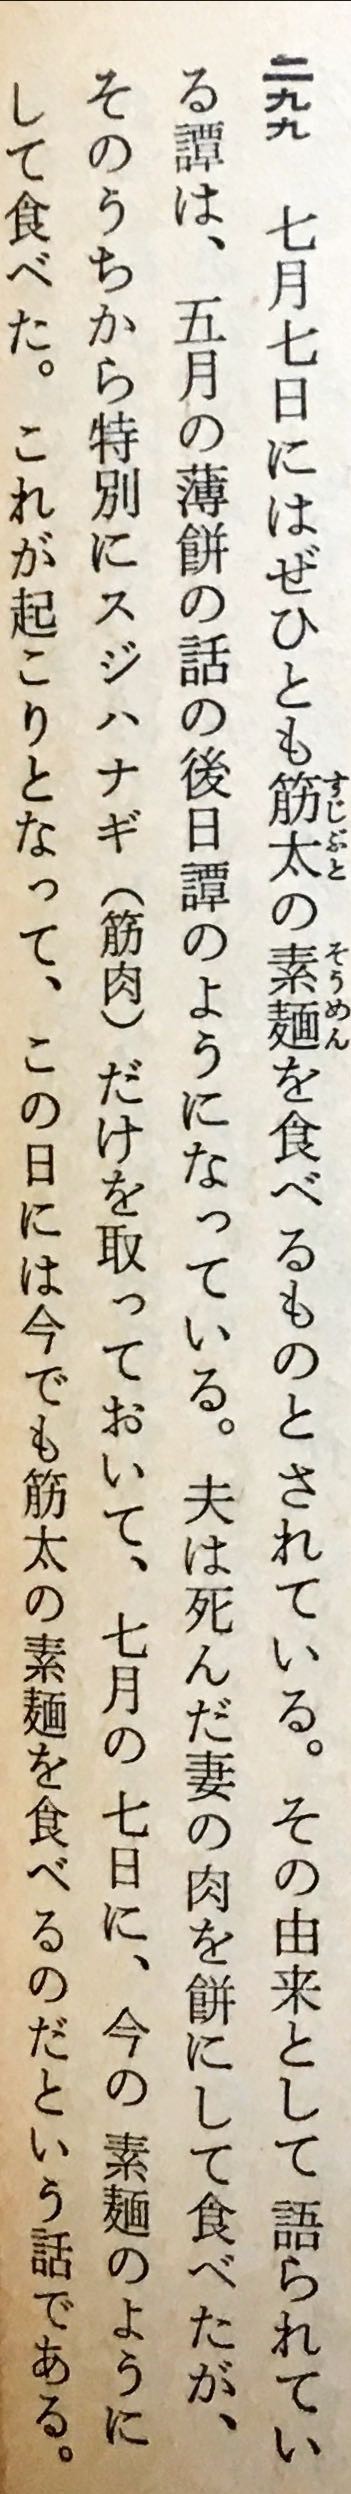 二九九　七月七日にはぜひとも筋太の素麺を食べるものとされている。その由来として語られてい
る譚は、五月の薄餅の話の後日譚のようになっている。夫は死んだ妻の肉を餅にして食べたが、
そのうちから特別にスジハナギ（筋肉）だけを取っておいて、七月の七日に、今の素麺のように
して食べた。これが起こりとなって、この日には今でも筋太の素麺を食べるのだという話である。
すじぶと
そうめん